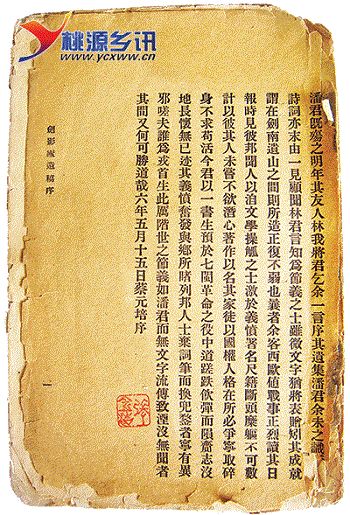 桃源乡讯
www.ycxww.cn
潘君旣殤之明年其友人林我將君乞余一言序其遺集潘君余未之識
詩詞亦末由一見顧聞林君言知爲節義之士雖微文字猶將表贈矧其成就
謂在劍南遺山之間則所造正復不弱也曩者余客西歐値戰事正烈讀其日
報時見彼邦聞人以洎文學操觚之士激於義憤著名尺籍斷頭糜軀不可數
計以彼其人未嘗不欲潛心著作以名其家徒以國權人格在所必爭寧取碎
身不求苟活今君以一書生預於七閩革命之役中道蹉跌飲彈而隕齎志沒
地長懷無已迹其義憤奮發與鄉所睹列邦人士棄詞筆而換兜鍪者寧有異
邪嗟夫誰爲戎首生此厲階世之節義如潘君而無文字流傳致湮沒無聞者
其間又何可勝道哉六年五月十五日蔡元培序
劍影遺稿序
一